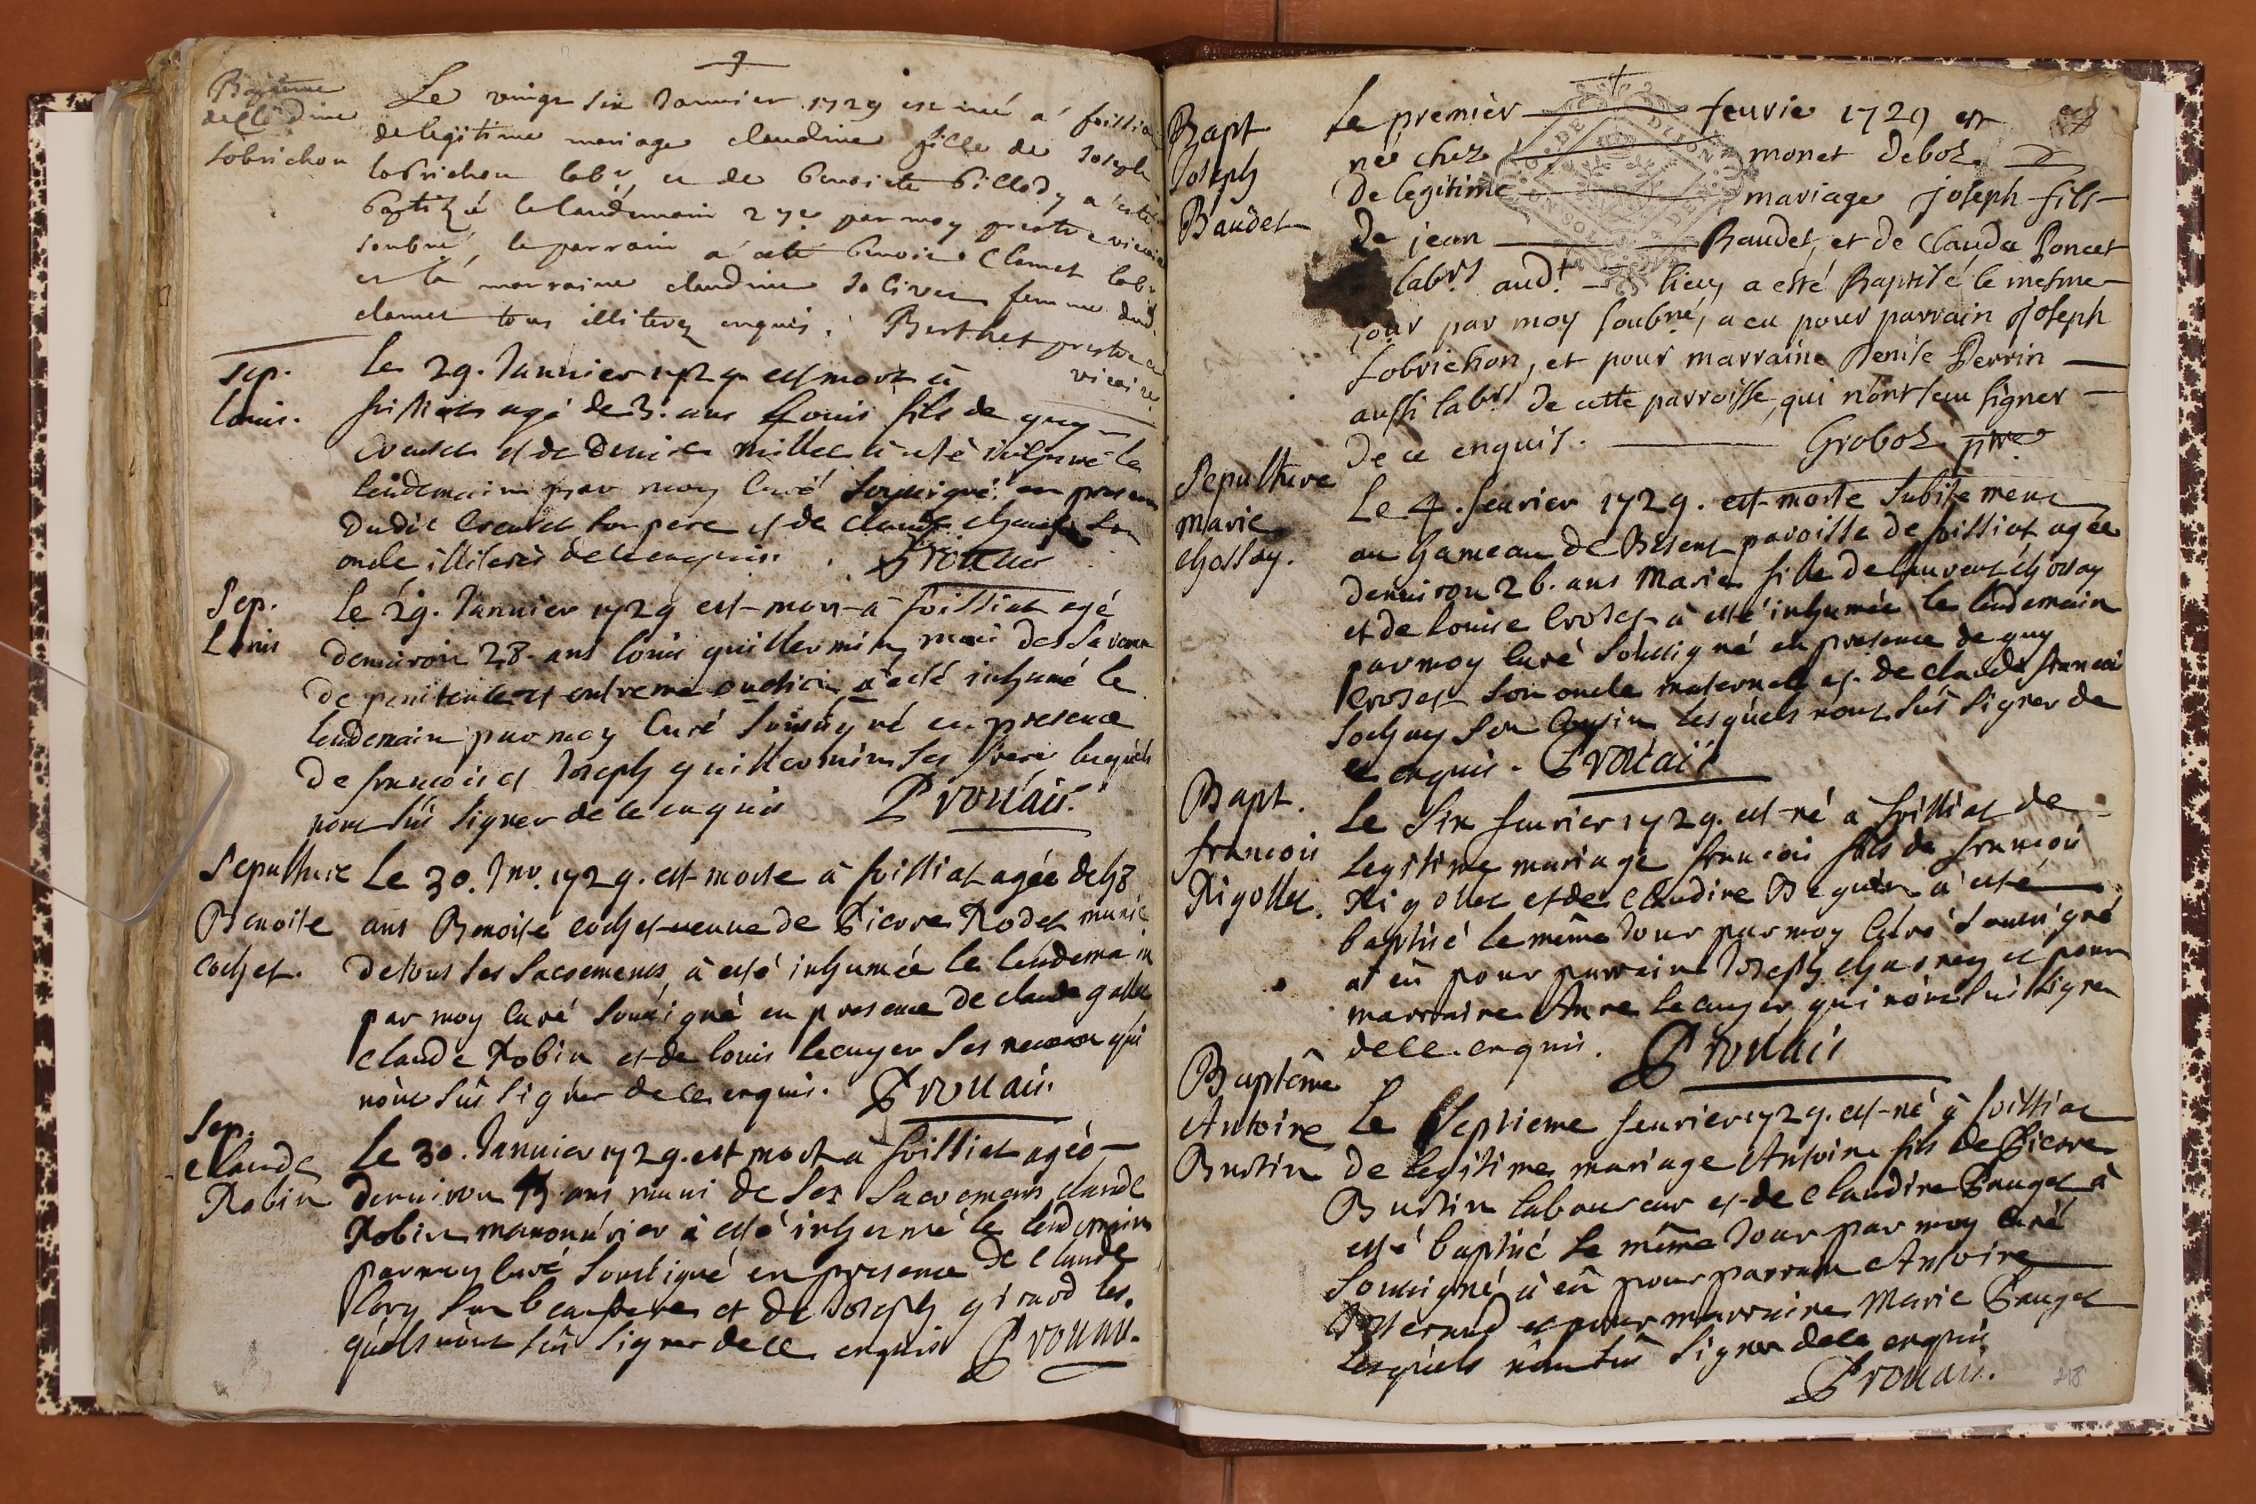 Baptême
de Claudine
Lobrichon
Le vingt six Januier 1729 est né à foissiat
de legitime mariage claudine fille de Joseph
lobrichon labr et de benoite billody a esté
baptizé le landemain 27e par moy prestre vicaire
soubné, le parrain a esté benoist Clamet labr
et la marraine claudine Jolivet femme dud.
clamet tous illiterez enquis. Berthet prestre
vicaire
Sep.
louis.
le 29. Januier 1729 est mort à
foissiat agé de 3. ans Louis fils de guy
creuset et de denise millet à esté inhumé le
lendemain par moy Curé soussigné en presence
dudit Creuset son pere et de claude son
oncle illiteréz de ce enquis. Prouais
Sep.
Louis
le 29. Januier 1729 est mort à foissiat agé
denuiron 28 ans louis guillermin muni des sacremens
de penitence et extreme onction à esté inhumé le
lendemain par moy Curé soussigné en presence
de francois et Joseph guillermin ses freres lesquels
n'ont sûs signer de ce enquis Prouais.
Sepulture
Benoite
Cochet.
Le 30. Jnv. 1729. est morte à foissiat agée de 48
ans Benoite cochet veuve de Pierre Rodet munie
de tous ses sacremens, à esté inhumée le lendemain
par moy Curé soussigné en presence de claude gallet
claude Robin et de louis lecuyer ses neveux qui
n'ont sûs signer de ce enquis. Prouais
Sep.
Claude
Robin
Le 30. Januier 1729. est mort à foissiat agé
denuiron ans muni de ses sacremens claude
Robin manouurier à esté inhumé le lendemain
par moy Curé soussigné en presence de Claude
flory son beaufrere et de Joseph girard les-
quels n'ont sûs signer de ce enquis Prouais.
Bapt
Joseph
Baudet
Le premier feurie 1729 est
né chez monet deboz
De legitime mariage joseph fils
De jean Baudet, et de Clauda Poncet
labrs audt lieu, a esté Baptisé le mesme
jour par moy soubné, a eu pour parrain Joseph
Lobrichon, et pour marraine Denise Perrin
aussi labrs de cette parroisse, qui n'ont seu signer
De ce enquis. Groboz ptre
Sepulture
Marie
chossay.
Le 4. feurier 1729. est morte subitement
au hameau de Besent paroisse de foissiat agée
denuiron 26. ans Marie fille de laurent chossay
et de louise Crozet à esté inhumée le lendemain
par moy Curé soussigné en presence de guy
Crozet son oncle maternel et de claude francois
sochay son Cousin lesquels n'ont sûs signer de
ce enquis. Prouais
Bapt.
francois
Rigollet.
Le six feurier 1729. est né à foissiat de
legitime mariage francois fils de francois
Rigollet et de claudine Beguin à esté
baptisé le même Jour par moy Curé soussigné
at eû pour parrain Joseph charnay et pour
marraine Anne lecuyer qui n'ont sûs signer
de ce enquis. Prouais
Baptême
Antoine
Bustin
Le septieme feurier 1729. est né à foissiat
de legitime mariage Antoine fils de Pierre
Bustin laboureur et de claudine Pauget à
esté baptisé le même Jour par moy curé
soussigné, à eû pour parrain Antoine
et pour marraine Marie Pauget
lesquels n'ont sûs signer de ce enquis
Prouais.
218